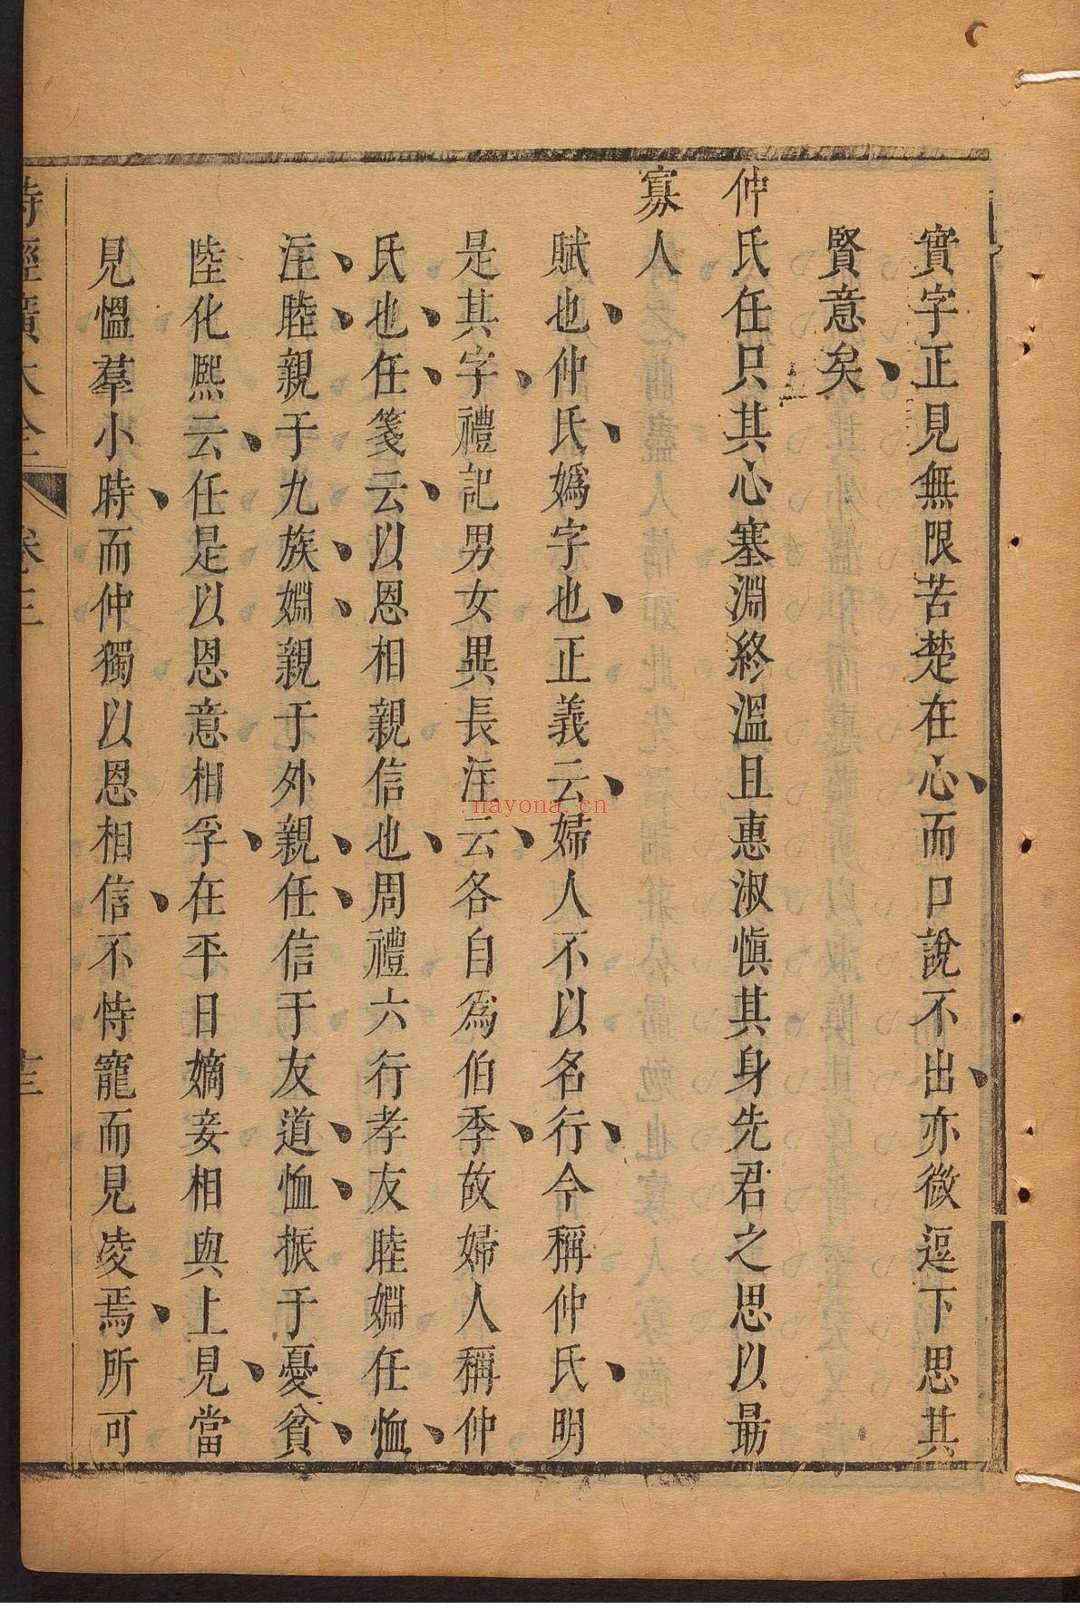 實字正見無限苦楚在心而口說不出亦微逗下思其
賢意矣
仲氏任只其心塞淵終溫且惠淑慎其身先君之思以勗
寡人
賦也仲氏媯字也正義云婦人不以名行今稱仲氏明
是其字禮記男女異長注云各自為伯季故婦人稱仲
氏也任箋云以恩相親信也周禮六行孝友睦婣任恤
注睦親于九族婣親于外親任信于友道恤振于憂貧
陸化熙云任是以恩意相孚在平日嫡妾相與上見當
見慍羣小時而仲獨以恩相信不恃寵而見凌焉所可
詩經廣大全 卷三 十三
nayona.cn